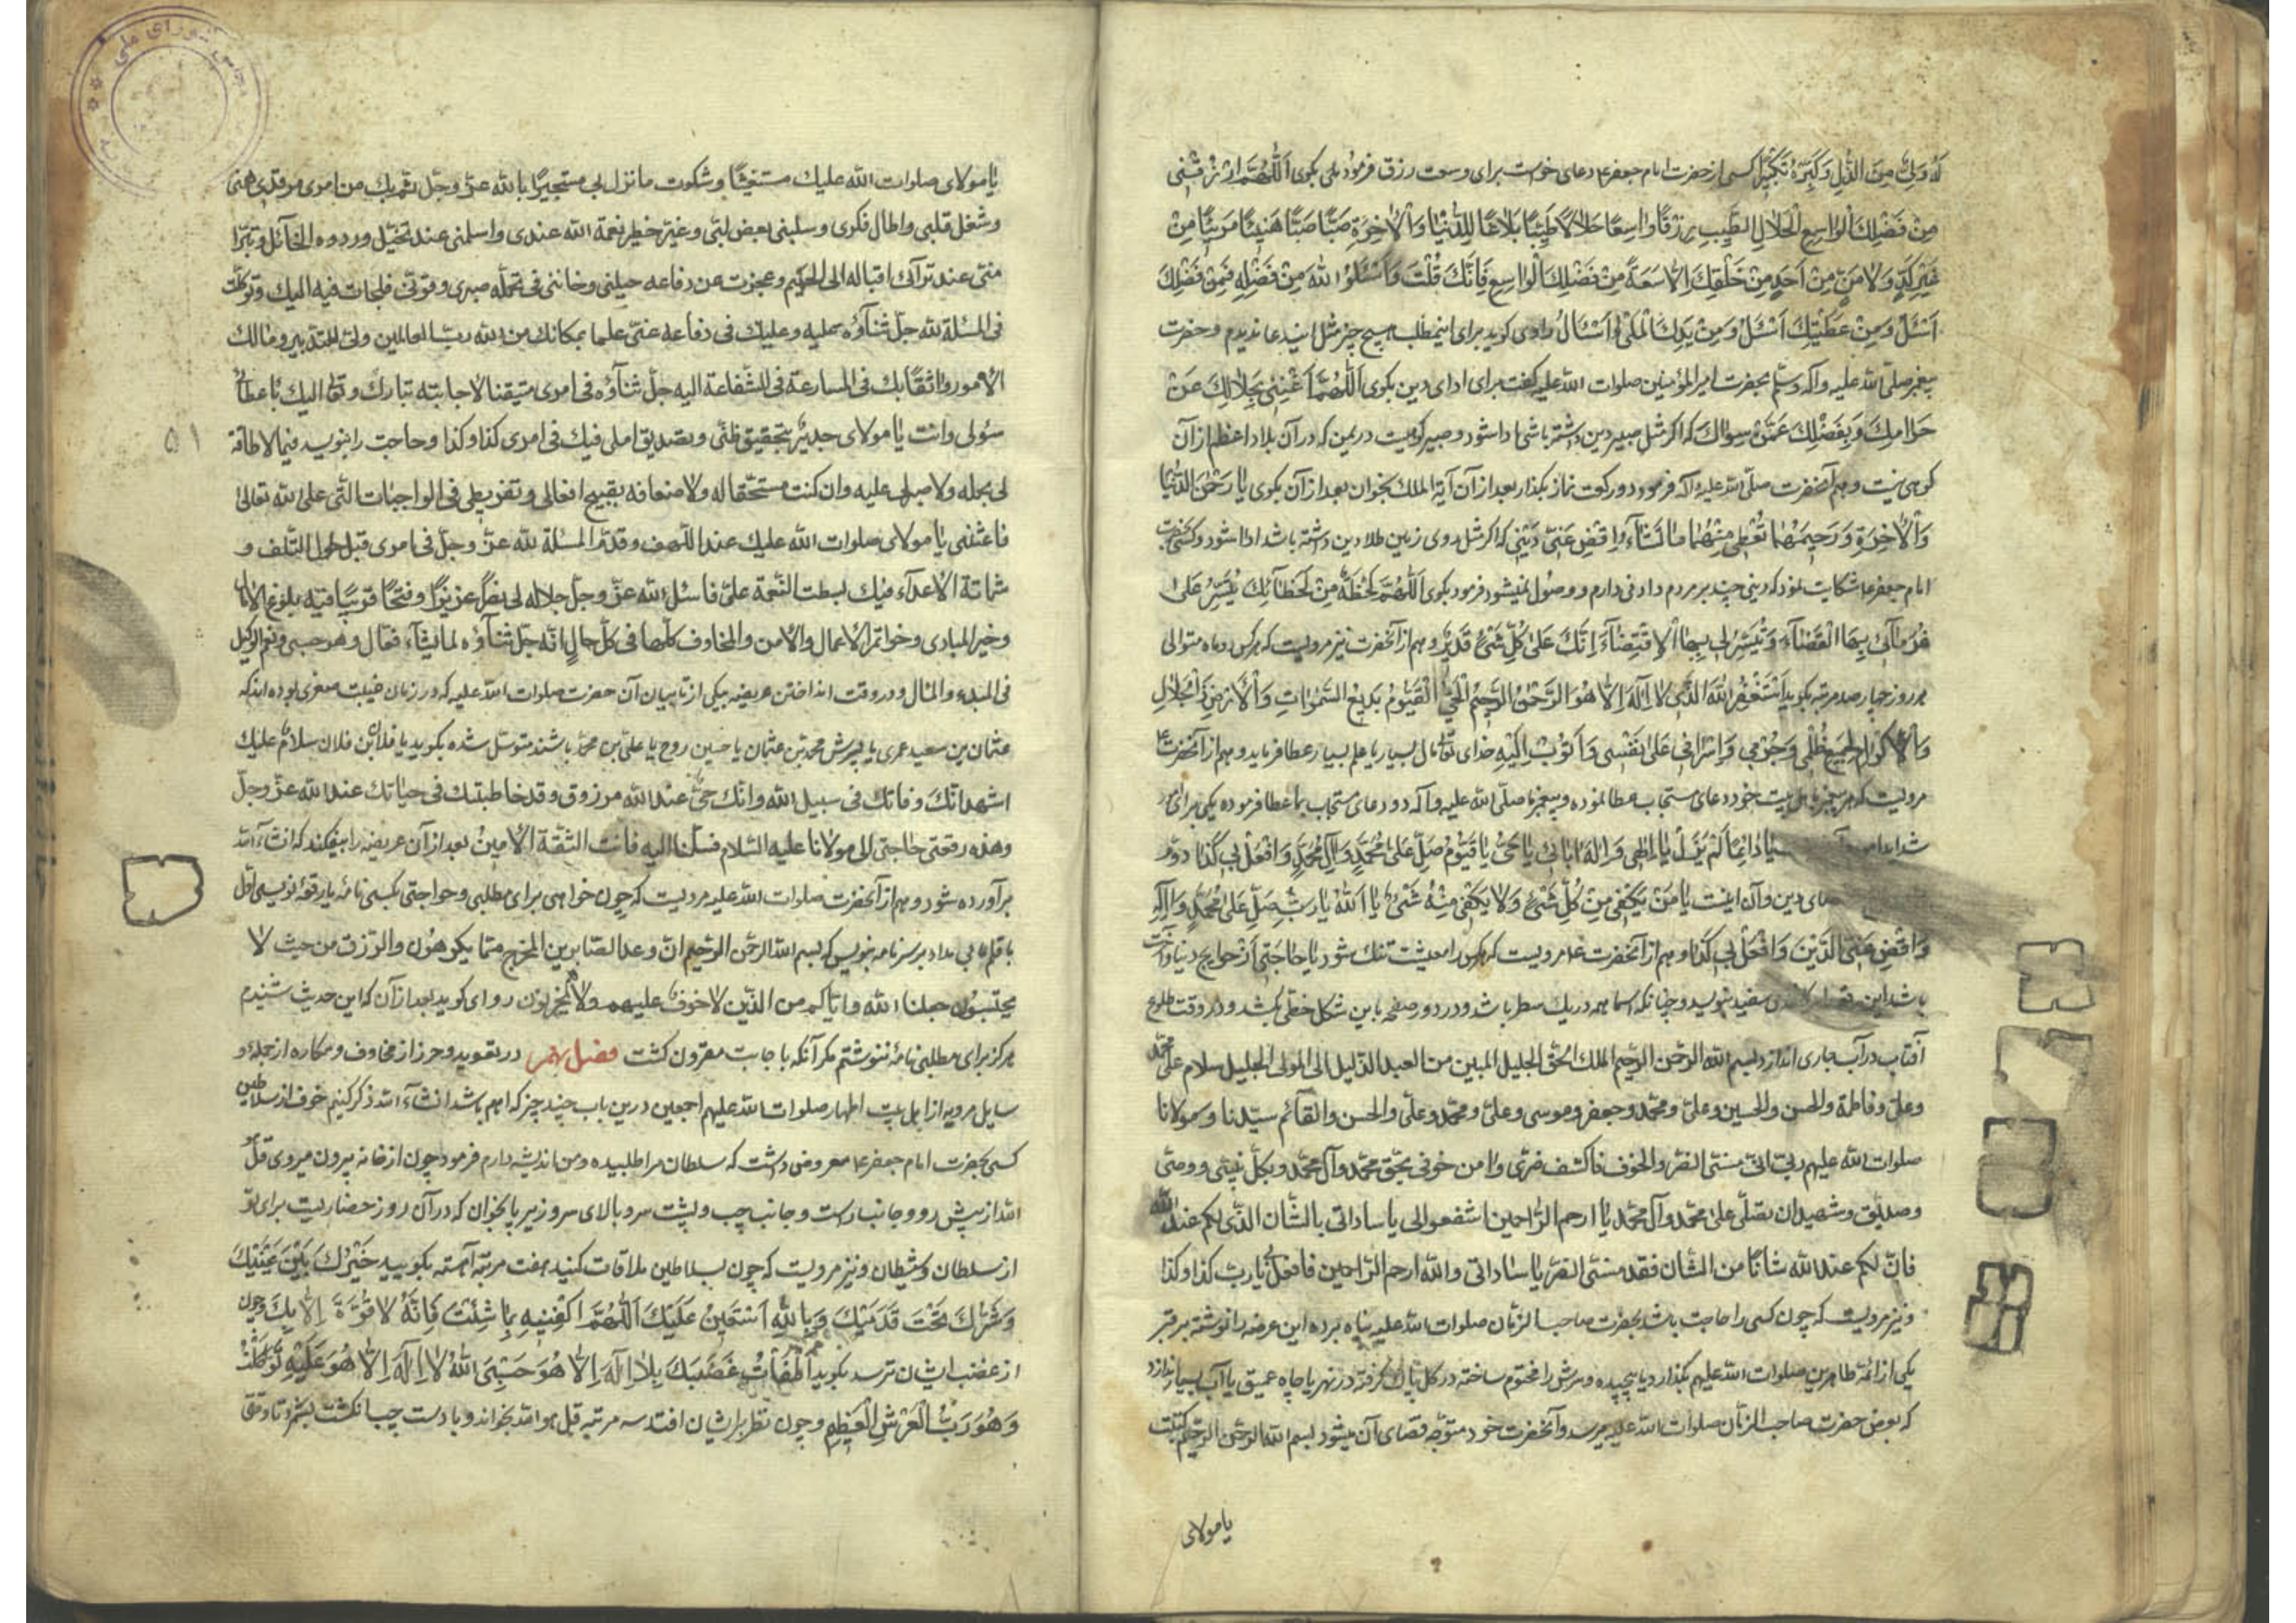 لَهُ وَلِيٌّ مِنَ الذُّلِّ وَكَبِّرْهُ تَكْبِيرًا كسى از حضرت امام جعفر ع دعاى خواست براى وسعت رزق فرمود بلى بكوى اَللّٰهُمَّ ارْزُقْنِى
مِنْ فَضْلِكَ الْوٰاسِعِ الْحَلٰالِ الطَّيِّبِ رِزْقًا وٰاسِعًا حَلٰالًا طَيِّبًا بَلٰاغًا لِلدُّنْيٰا وَالْاٰخِرَةِ صَبًّا صَبًّا هَنِيئًا مَرِيئًا مِنْ
غَيْرِ كَدٍّ وَلٰا مَنٍّ مِنْ اَحَدٍ مِنْ خَلْقِكَ اِلّٰا سَعَةً مِنْ فَضْلِكَ الْوٰاسِعِ فَاِنَّكَ قُلْتَ وَاسْئَلُوا اللهَ مِنْ فَضْلِهِ فَمِنْ فَضْلِكَ
اَسْئَلُ وَمِنْ عَطِيَّتِكَ اَسْئَلُ وَمِنْ يَدِكَ الْمَلْىٰ اَسْئَالُ راوى كويد براى اينمطلب هيچ چيز مثل ايندعا نديدم و حضرت
پيغمبر صلى الله عليه وآله وسلم بحضرت امير المؤمنين صلوات الله عليه كفت براى اداى دين بكوى اَللّٰهُمَّ اَغْنِنِى بِحَلٰالِكَ عَنْ
حَرٰامِكَ وَبِفَضْلِكَ عَمَّنْ سِوٰاكَ كه اكر مثل صبير دين داشته باشى ادا شود و صبير كوهيست در يمن كه در آن بلاد اعظم از آن
كوهى نيست و هم آنحضرت صلّى الله عليه وآله فرمود دو ركعت نماز بكذار بعد از آن آية الملك بخوان بعد از آن بكوى يٰا رَحْمٰنَ الدُّنْيٰا
وَالْاٰخِرَةِ وَرَحِيمَهُمٰا تُعْطِى مِنْهُمٰا مٰا تَشٰاءُ اِقْضِ عَنِّى دَيْنِى كه اكر مثل روى زمين طلا دين داشته باشد ادا شود و كسى بحضرت
امام جعفر ع شكايت نمود كه دينى چند بر مردم دارم و وصول نميشود فرمود بكوى اَللّٰهُمَّ لَحْظَةً مِنْ لَحَظٰاتِكَ تُيَسِّرُ عَلٰى
غُرَمٰائِى بِهَا الْقَضٰاءَ وَتُيَسِّرُ لِى بِهَا الْاِقْتِضٰاءَ اِنَّكَ عَلٰى كُلِّ شَىْءٍ قَدِيرٌ و هم از آنحضرت نيز مرويست كه هر كس دو ماه متوالى
هر روز چهار صد مرتبه بكويد اَسْتَغْفِرُ اللهَ الَّذِى لٰا اِلٰهَ اِلّٰا هُوَ الرَّحْمٰنُ الرَّحِيمُ الْحَىُّ الْقَيُّومُ بَدِيعُ السَّمٰوٰاتِ وَالْاَرْضِ ذُو الْجَلٰالِ
وَالْاِكْرٰامِ لِجَمِيعِ ظُلْمِى وَجُرْمِى وَاِسْرٰافِى عَلٰى نَفْسِى وَاَتُوبُ اِلَيْهِ خداى تعالى مال بسيار يا علم بسيار عطا فرمايد و هم از آنحضرت ع
مرويست كه هر پيغمبر باهل بيت خود دعاى مستجاب عطا نموده و پيغمبر ما صلّى الله عليه وآله دو دعاى مستجاب بما عطا فرموده يكى براى
شدايد يٰا دٰائِمًا لَمْ يَزَلْ يٰا اِلٰهِى وَاِلٰهَ اٰبٰائِى يٰا حَىُّ يٰا قَيُّومُ صَلِّ عَلٰى مُحَمَّدٍ وَاٰلِ مُحَمَّدٍ وَافْعَلْ بِى كَذٰا دوّم
دين و آن اينست يٰا مَنْ يَكْفِى مِنْ كُلِّ شَىْءٍ وَلٰا يَكْفِى مِنْهُ شَىْءٌ يٰا اَللهُ يٰا رَبِّ صَلِّ عَلٰى مُحَمَّدٍ وَاٰلِهِ
وَاقْضِ عَنِّى الدَّيْنَ وَافْعَلْ بِى كَذٰا و هم از آنحضرت ع مرويست كه هر كس را معيشت تنك شود يا حاجتى از حوايج دنيا و آخرت
باشد اين سفيد بنويسد و چنانكه اسما همه در يك سطر باشد و در دور صفحه باين شكل خطّى بكشد و در وقت طلوع
آفتاب در آب جارى اندازد بسم الله الرّحمن الرّحيم الملك الحقّ الجليل المبين من العبد الذّليل الى المولى الجليل سلام على محمّد
وعلىّ وفاطمة والحسن والحسين وعلىّ ومحمّد وجعفر وموسى وعلىّ ومحمّد وعلىّ والحسن والقائم سيّدنا ومولانا
صلوات الله عليهم ربّ انّى مسّنى الضّرّ والخوف فاكشف ضرّى وامن خوفى بحقّ محمّد وآل محمّد وبكلّ نبىّ ووصىّ
وصدّيق وشهيد ان تصلّى على محمّد وآل محمّد يا ارحم الرّاحمين اشفعوا لى يا ساداتى بالشّأن الّذى لكم عند الله
فانّ لكم عند الله شأنًا من الشّأن فقد مسّنى الضّرّ يا ساداتى والله ارحم الرّاحمين فافعل بى يا ربّ كذا وكذا
و نيز مرويست كه چون كسى را حاجت باشد بحضرت صاحب الزّمان صلوات الله عليه پناه برده اين عرضه را نوشته بر قبر
يكى از ائمّه طاهرين صلوات الله عليهم بكذارد يا پيچيده و سرش را مختوم ساخته در كل پاك كرفته در نهر يا چاه عميق يا آب بسيار اندازد
كه بعرض حضرت صاحب الزّمان صلوات الله عليه ميرسد و آنحضرت خود متوجّه قضاى آن ميشود بسم الله الرّحمن الرّحيم كتبت
يا مولاى
يا مولاى صلوات الله عليك مستغيثًا وشكوت ما نزل بى مستجيرًا بالله عزّ وجلّ ثمّ بك من امرى قد دهمنى
وشغل قلبى واطال فكرى وسلبنى بعض لبّى وغيّر خطير نعمة الله عندى واسلمنى عند تخيّل وروده الخليل وتبرّأ
منّى عند ترآئى اقباله الىّ الحميم وعجزت عن دفاعه حيلتى وخاننى فى تحمّله صبرى وقوّتى فلجأت فيه اليك وتوكّلت
فى المسئلة لله جلّ ثنآؤه عليه وعليك فى دفاعه عنّى علما بمكانك من الله ربّ العالمين ولىّ التّدبير ومالك
الأمور واثقًا بك فى المسارعة فى الشّفاعة اليه جلّ ثنآؤه فى امرى متيقّنا لاجابته تبارك وتعالى اليك باعطاء
سؤلى وانت يا مولاى جدير بتحقيق ظنّى وتصديق املى فيك فى امرى كذا وكذا و حاجت را بنويسد فيما لا طاقة
لى بحمله ولا صبر لى عليه وان كنت مستحقّا له ولاضعافه بقبيح افعالى وتفريطى فى الواجبات الّتى على الله تعالى
فاغثنى يا مولاى صلوات الله عليك عند اللّهف وقدّم المسئلة لله عزّ وجلّ فى امرى قبل حلول التّلف و
شماتة الأعدآء فبك بسطت النّعمة علىّ فاسئل الله عزّ وجلّ جلاله لى نصرًا عزيزًا وفتحًا قريبًا فيه بلوغ الآمال
وخير المبادى وخواتم الأعمال والأمن والمخاوف كلّها فى كلّ حال انّه جلّ ثنآؤه لما يشآء فعّال وهو حسبى ونعم الوكيل
فى المبدء والمآل و در وقت انداختن عريضه بيكى از نايبان آن حضرت صلوات الله عليه كه در زمان غيبت صغرى بوده اند كه
عثمان بن سعيد عمرى يا پسرش محمد بن عثمان يا حسين روح يا علىّ بن محمّد باشند متوسّل شده بكويد يا فلان بن فلان سلام عليك
اشهد انّك وفاتك فى سبيل الله وانّك حىّ عند الله مرزوق وقد خاطبتك فى حياتك عند الله عزّ وجلّ
وهذه رقعتى وحاجتى الى مولانا عليه السّلام فسلّمها اليه فانت الثّقة الأمين بعد از آن عريضه را بيفكند كه انشآءالله
برآورده شود و هم از آنحضرت صلوات الله عليه مرويست كه چون خواهى براى مطلبى و حواجتى بكسى نامه يا رقعه نويسى اوّل
با قلم بى مداد بر سر نامه بنويس كه بسم الله الرحمن الرّحيم انّ وعد الصّابرين المخرج ممّا يكرهون والرّزق من حيث لا
يحتسبون جعلنا الله وايّاكم من الّذين لا خوف عليهم ولا هم يحزنون راوى كويد بعد از آن كه اين حديث شنيدم
هركز براى مطلبى نامه ننوشتم مكر آنكه با جابت مقرون كشت فصل نهم در تعويذ و حرز از مخاوف و مكاره از جمله و
سايل مرويه از اهل بيت اطهار صلوات الله عليهم اجمعين درين باب چند چيز كه اهم باشد انشآءالله ذكر كنيم خوف از سلاطين
كسى بحضرت امام جعفر ع معروض داشت كه سلطان مرا طلبيده و من انديشه دارم فرمود چون از خانه بيرون ميروى قل هو
الله از پيش رو و جانب راست و جانب چپ و پشت سر و بالاى سر و زير پا بخوان كه در آن روز حصاريست براى تو
از سلطان و شيطان و نيز مرويست كه چون بسلاطين ملاقات كنيد هفت مرتبه آهسته بكوييد خَيْرُكَ بَيْنَ عَيْنَيْكَ
وَشَرُّكَ تَحْتَ قَدَمَيْكَ وَبِاللهِ اَسْتَعِينُ عَلَيْكَ اَللّٰهُمَّ اكْفِنِيهِ بِمٰا شِئْتَ فَاِنَّهُ لٰا قُوَّةَ اِلّٰا بِكَ و چون
از غضب ايشان ترسد بكويد اَطْفَأْتُ غَضَبَكَ بِلٰا اِلٰهَ اِلّٰا هُوَ حَسْبِىَ اللهُ لٰا اِلٰهَ اِلّٰا هُوَ عَلَيْهِ تَوَكَّلْتُ
وَهُوَ رَبُّ الْعَرْشِ الْعَظِيمِ و چون نظر بر ايشان افتد سه مرتبه قل هو الله بخواند و با دست چپ انكشت بشمرد تا وقتى
۵۱
مجلس شوراى ملى